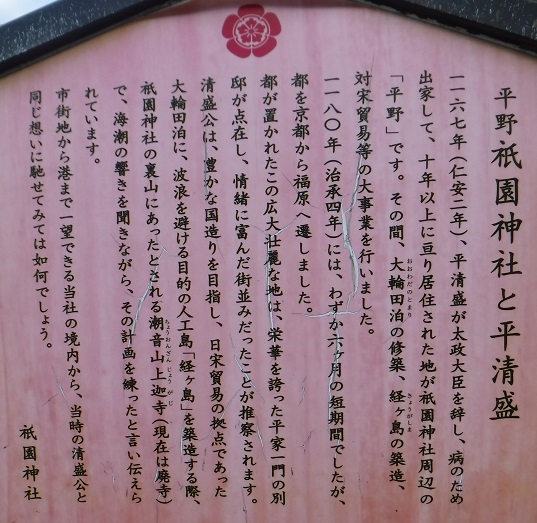 平野祇園神社と平清盛
一一六七年（仁安二年）、平清盛が太政大臣を辞し、病のため
出家して、十年以上に亘り居住された地が祇園神社周辺の
「平野」です。その間、大輪田泊の修築、経ヶ島の築造、
おおわだのとまり
きょうがしま
対宋貿易等の大事業を行いました。
一一八〇年（治承四年）には、わずか六ヶ月の短期間でしたが、
都を京都から福原へ遷しました。
都が置かれたこの広大壮麗な地は、栄華を誇った平家一門の別
邸が点在し、情緒に富んだ街並みだったことが推察されます。
清盛公は、豊かな国造りを目指し、日宋貿易の拠点であった
大輪田泊に、波浪を避ける目的の人工島「経ヶ島」を築造する際、
祇園神社の裏山にあったとされる潮音山上迦寺（現在は廃寺）
ちょうおんざんじょうがじ
で、海潮の響きを聞きながら、その計画を練ったと言い伝えら
れています。
市街地から港まで一望できる当社の境内から、当時の清盛公と
同じ想いに馳せてみては如何でしょう。
祇園神社